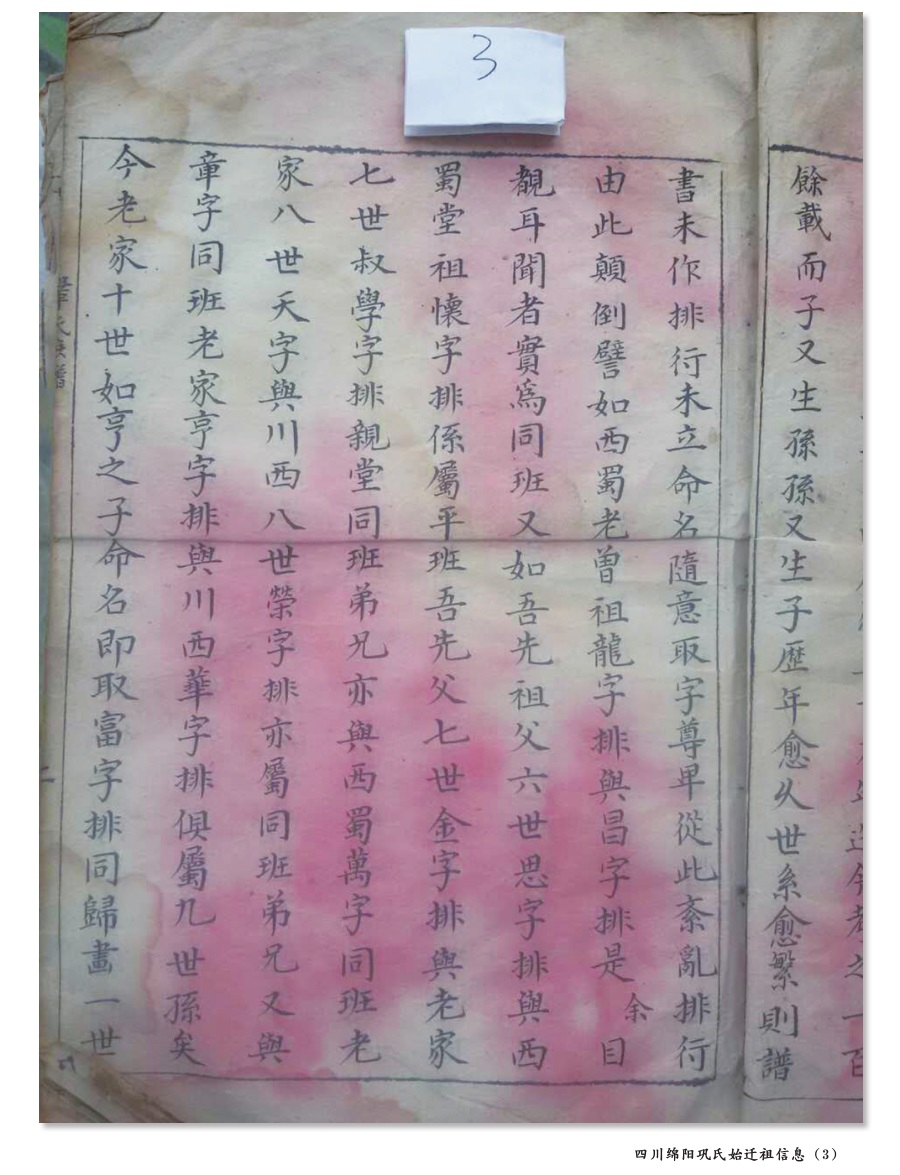 3
餘載而子又生孫孫又生子歷年愈久世系愈繁則譜
書未作排行未立命名隨意取字尊卑從此紊亂排行
由此顛倒譬如西蜀老曾祖龍字排與昌字排是余目
覩耳聞者實爲同班又如吾先祖父六世思字排與西
蜀堂祖懷字排係屬平班吾先父七世金字排與老家
七世叔學字排親堂同班弟兄亦與西蜀萬字同班老
家八世天字與川西八世榮字排亦屬同班弟兄又與
章字同班老家亨字排與川西華字排俱屬九世孫矣
今老家十世如亨之子命名即取富字排同歸畫一世
四川绵阳巩氏始迁祖信息（3）